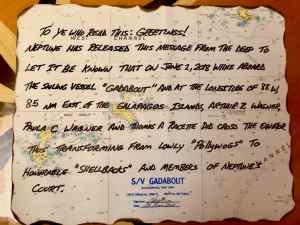 To Ye Who Read This: Greetings!
WEST CHANNEL
Neptune has released this message from the deep to
let it be known that on June 2, 2018 while aboard
the sailing vessel "Gadabout" and at the longitude of 88 W
85 nm East of the Galapagos Islands, Arthur Z. Wagner,
Paula C. Wagner and Thomas A. did cross the equator
thus transforming from lowly "Pollywogs" to
Honorable "Shellbacks" and members of Neptune's
Court.
S/V GADABOUT